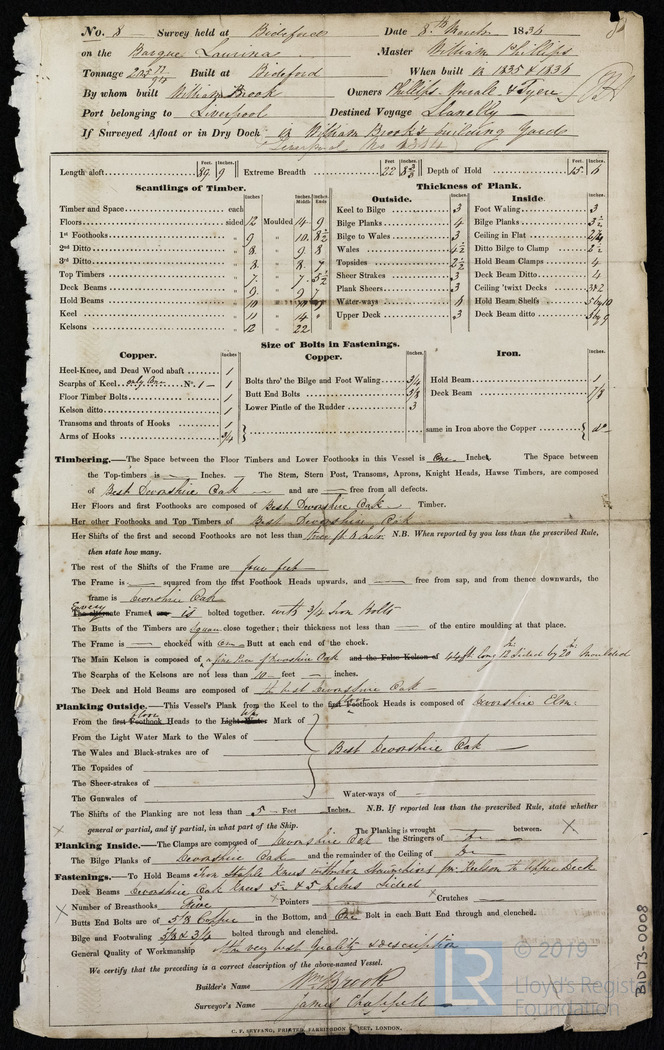 No. 8 Survey held at Bideford Date 8th March 1836
on the Barque Lavinia Master William Phillips
Tonnage Built at Bideford When built in 1835 & 1836
By whom built William Brook Owners Phillips
Port belonging to Liverpool Destined Voyage Llanelly
If Surveyed Afloat or in Dry Dock in William Brook's building Yard
Feet. Inches. Feet. Inches. Feet. Inches.
Length aloft 89 9 Extreme Breadth 22 Depth of Hold 15 6
Scantlings of Timber. Thickness of Plank.
Inches Inches Middle Inches Ends Outside. Inches Inside. Inches
Timber and Space each Keel to Bilge 3 Foot Waling 3
Floors sided 12 Moulded 14 9 Bilge Planks 4 Bilge Planks 3½
1st Foothooks " 9 " 10 8½ Bilge to Wales 3 Ceiling in Flat
2nd Ditto " 8 " 9 8 Wales 4½ Ditto Bilge to Clamp 2½
3rd Ditto " 8 " 8 7 Topsides 2½ Hold Beam Clamps 4
Top Timbers " 7 " 7 5½ Sheer Strakes 3 Deck Beam Ditto 4
Deck Beams " 9 " 9 7 Plank Sheers 3 Ceiling 'twixt Decks
Hold Beams " 10 " 10 Water-ways 4 Hold Beam Shelfs 5 by 10
Keel " 11 " 14 Upper Deck 3 Deck Beam ditto 5 by 9
Kelsons " 12 22
Size of Bolts in Fastenings.
Copper. Inches Copper. Inches Iron. Inches
Heel-Knee, and Dead Wood abaft 1
Scarphs of Keel only One No. 1 — 1 Bolts thro' the Bilge and Foot Waling 3/4 Hold Beam 1
Floor Timber Bolts 1 Butt End Bolts 5/8 Deck Beam 7/8
Kelson ditto 1 Lower Pintle of the Rudder 3
Transoms and throats of Hooks 1
Arms of Hooks 3/4 same in Iron above the Copper do
Timbering.—The Space between the Floor Timbers and Lower Foothooks in this Vessel is One Inches. The Space between
the Top-timbers is — Inches. — The Stem, Stern Post, Transoms, Aprons, Knight Heads, Hawse Timbers, are composed
of Best Devonshire Oak — and are — free from all defects.
Her Floors and first Foothooks are composed of Best Devonshire Oak Timber.
Her other Foothooks and Top Timbers of Best Devonshire Oak
Her Shifts of the first and second Foothooks are not less than three ft 6 inches. N.B. When reported by you less than the prescribed Rule,
then state how many.
The rest of the Shifts of the Frame are four feet
The Frame is — squared from the first Foothook Heads upwards, and — free from sap, and from thence downwards, the
frame is Devonshire Oak
Every
The alternate Frames are is bolted together. with 3/4 Iron Bolts
The Butts of the Timbers are Square close together; their thickness not less than — of the entire moulding at that place.
The Frame is — chocked with One Butt at each end of the chock.
The Main Kelson is composed of a fine Piece of Devonshire Oak and the False Kelson of 44 ft long 12 In: Sided by 20 In: Moulded
The Scarphs of the Kelsons are not less than 10 feet — inches.
The Deck and Hold Beams are composed of the best Devonshire Oak —
Planking Outside.—This Vessel's Plank from the Keel to the first floor Foothook Heads is composed of Devonshire Elm:
From the first Foothook floor Heads to the Light Water Mark of
From the Light Water Mark to the Wales of
The Wales and Black-strakes are of Best Devonshire Oak —
The Topsides of
The Sheer-strakes of
The Gunwales of Water-ways of
The Shifts of the Planking are not less than 5 — Feet Inches. N.B. If reported less than the prescribed Rule, state whether
general or partial, and if partial, in what part of the Ship. The Planking is wrought — between.
Planking Inside.—The Clamps are composed of Devonshire Oak the Stringers of Do
The Bilge Planks of Devonshire Oak and the remainder of the Ceiling of Do
Fastenings.—To Hold Beams Iron Staple Knees with Iron Stanchions from Kelson to Upper Deck
Deck Beams Devonshire Oak Knees 5 & 5 Inches Sided
Number of Breasthooks Five Pointers Crutches
Butts End Bolts are of 5/8 Copper in the Bottom, and One Bolt in each Butt End through and clenched.
Bilge and Footwaling 5/8 & 3/4 bolted through and clenched.
General Quality of Workmanship of the very best Quality & description
We certify that the preceding is a correct description of the above-named Vessel.
Builder's Name Wm Brook
Surveyor's Name James Chappell
C. F. SEYFANG, PRINTER, FARRINGDON STREET, LONDON.
© 2019
LR
Lloyd's Register
Foundation
BID73-0008